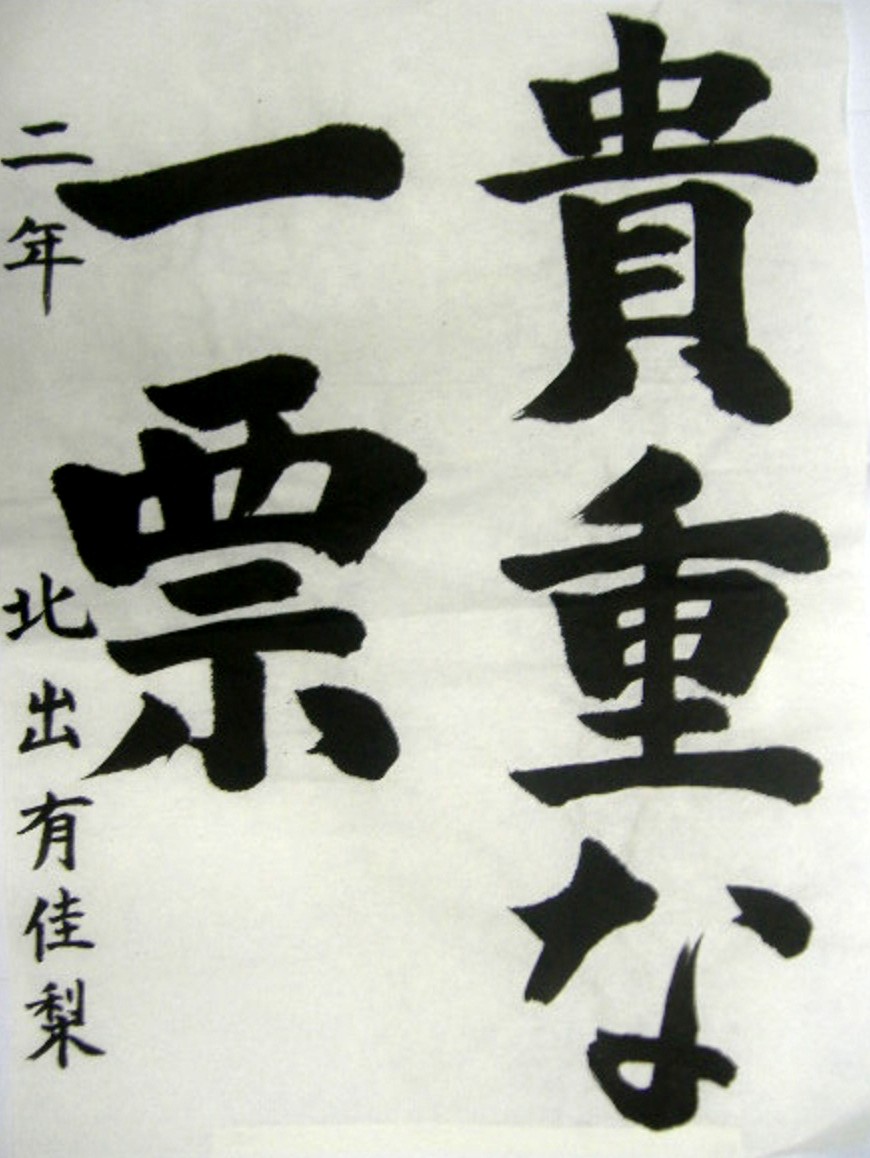 貴重な
一票
二年 北出有佳梨